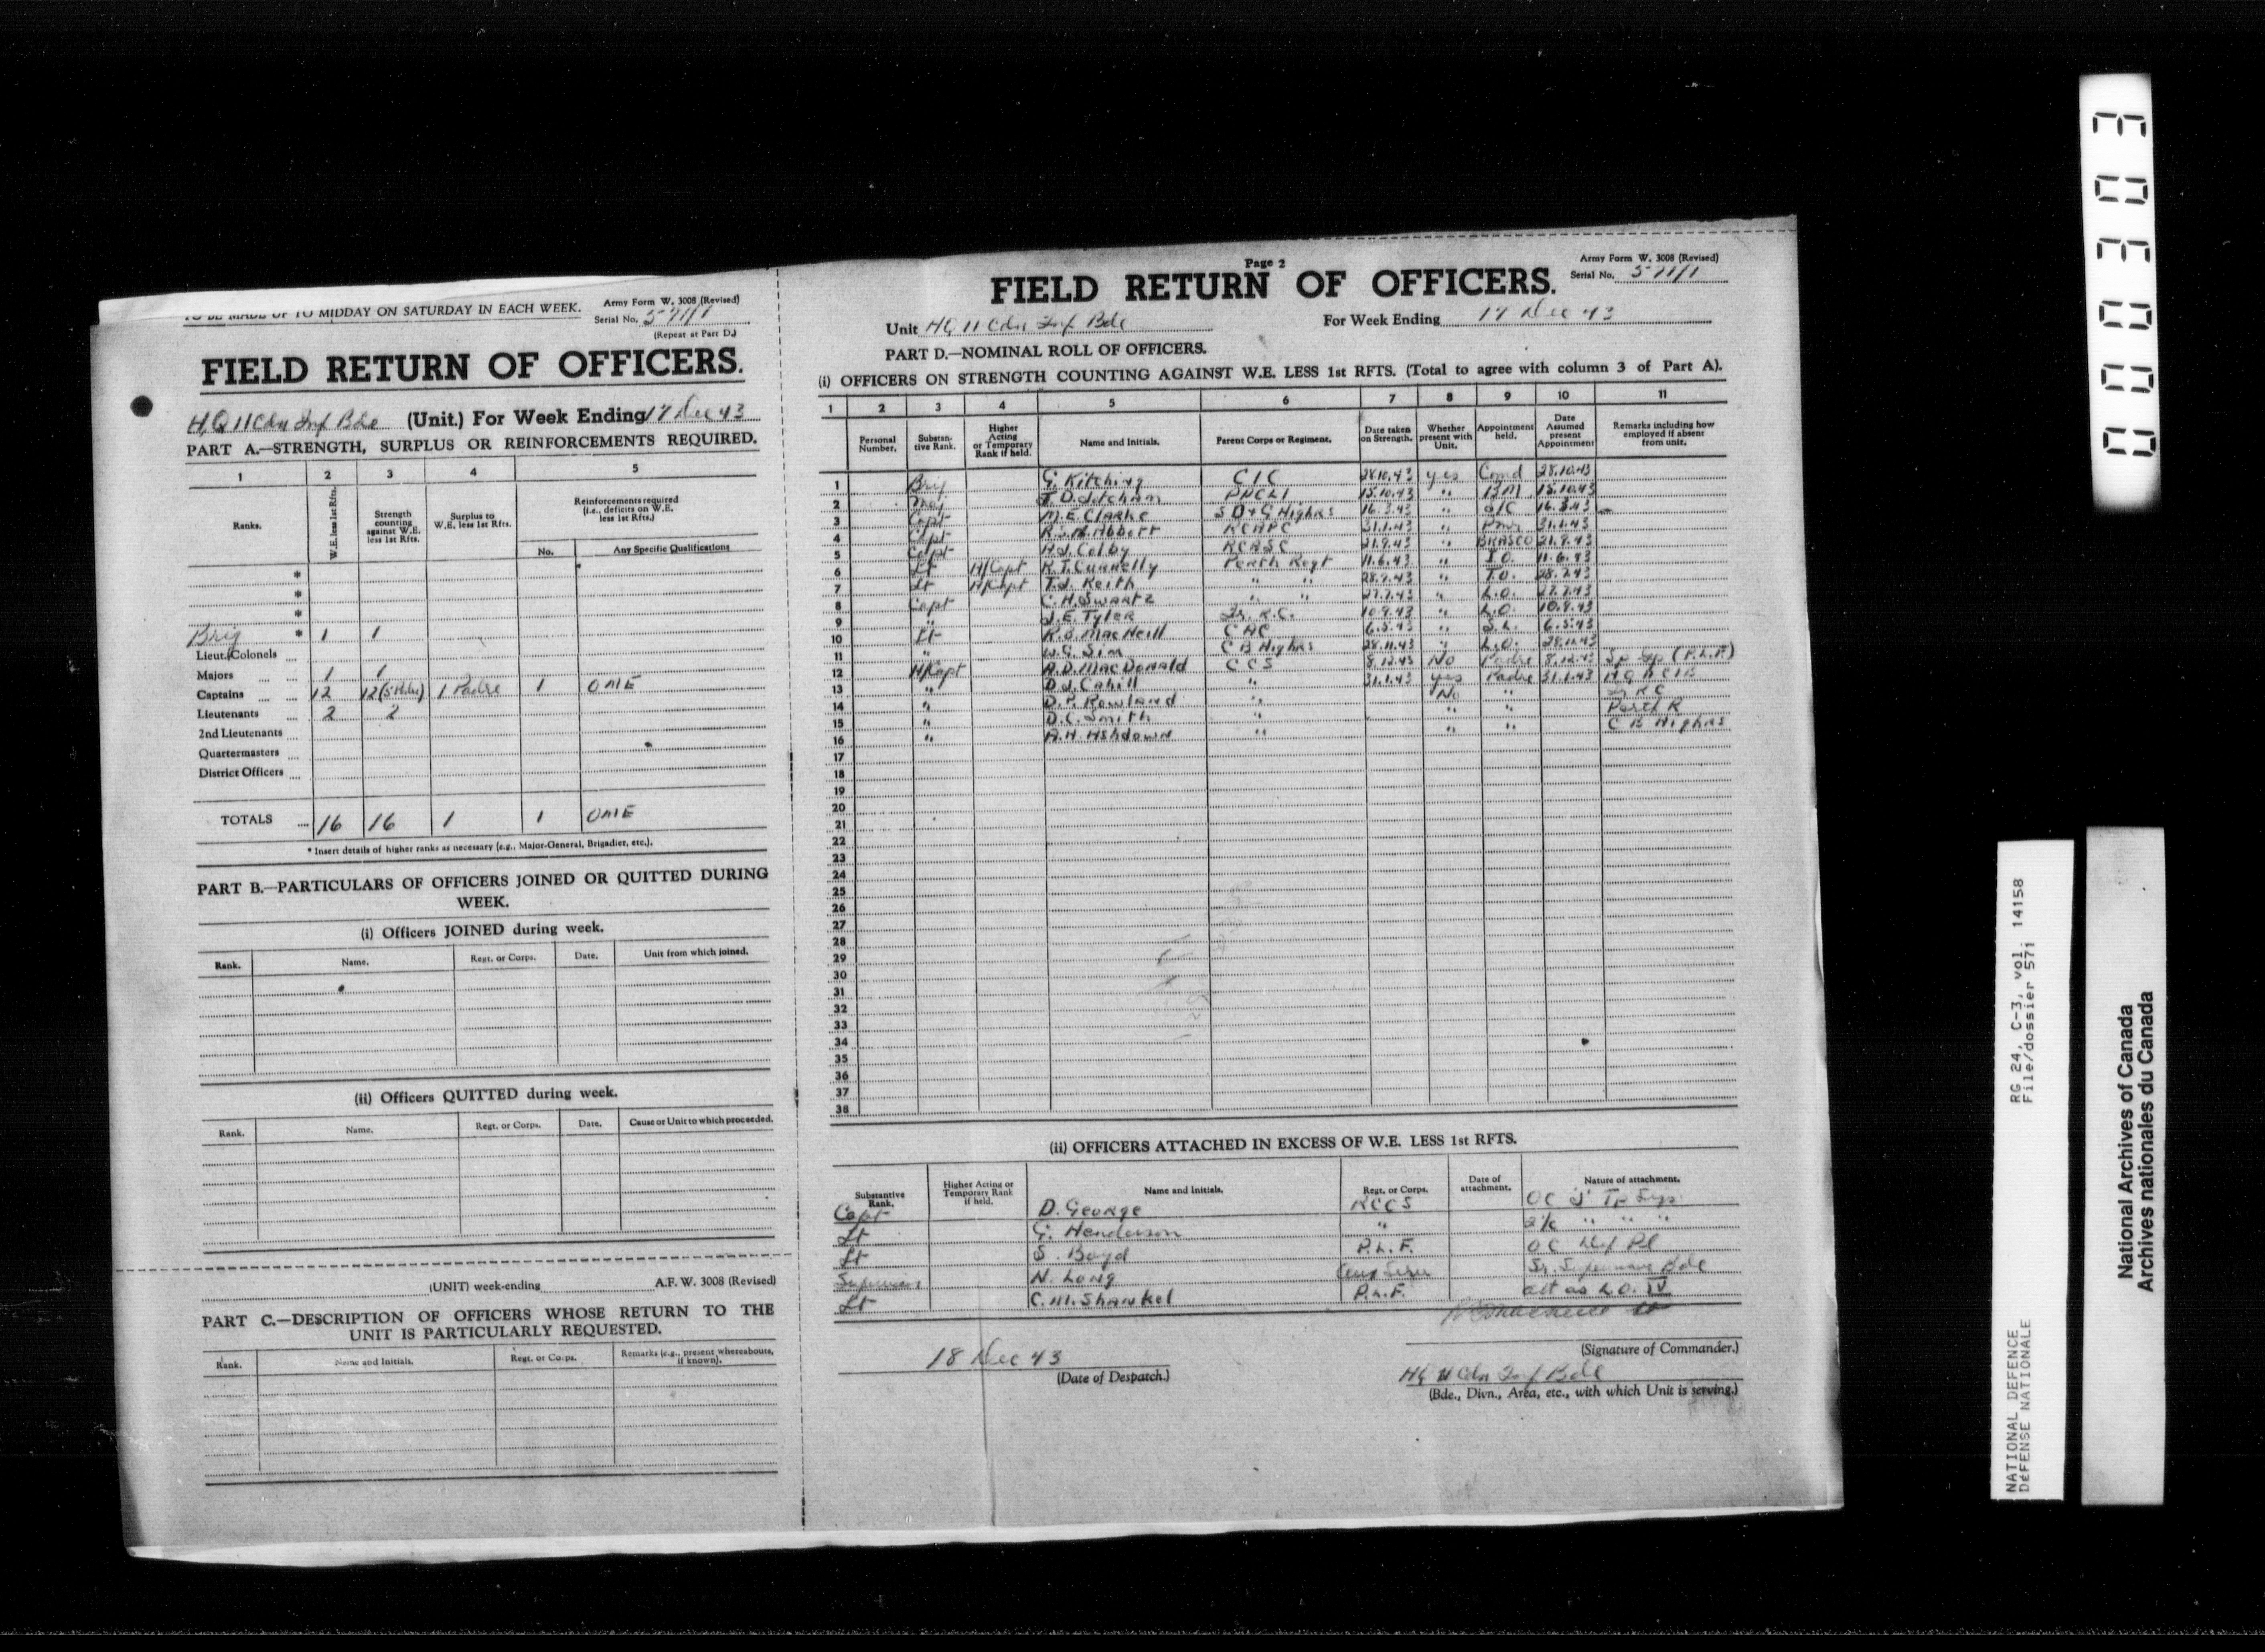 TO BE MADE UP TO MIDDAY ON SATURDAY IN EACH WEEK.
Army Form W. 3008 (Revised)
Serial No. 5-71/1
(Repeat at Part D.)
FIELD RETURN OF OFFICERS.
HQ 11 Cdn Inf Bde (Unit.) For Week Ending 17 Dec 43
PART A.—STRENGTH, SURPLUS OR REINFORCEMENTS REQUIRED.
1 2 3 4 5
Ranks. W.E. less 1st Rfts. Strength counting against W.E. less 1st Rfts. Surplus to W.E. less 1st Rfts. Reinforcements required (i.e., deficits on W.E. less 1st Rfts.)
No. Any Specific Qualifications
*
*
*
Brig * 1 1
Lieut.-Colonels ...
Majors ... ... 1 1
Captains ... ... 12 12 (5 Padres) 1 Padre 1 OME
Lieutenants ... 2 2
2nd Lieutenants ...
Quartermasters ...
District Officers ...
TOTALS ... 16 16 1 1 OME
* Insert details of higher ranks as necessary (e.g., Major-General, Brigadier, etc.).
PART B.—PARTICULARS OF OFFICERS JOINED OR QUITTED DURING
WEEK.
(i) Officers JOINED during week.
Rank. Name. Regt. or Corps. Date. Unit from which joined.
(ii) Officers QUITTED during week.
Rank. Name. Regt. or Corps. Date. Cause or Unit to which proceeded.
(UNIT) week-ending A.F. W. 3008 (Revised)
PART C.—DESCRIPTION OF OFFICERS WHOSE RETURN TO THE
UNIT IS PARTICULARLY REQUESTED.
Rank. Name and Initials. Regt. or Corps. Remarks (e.g., present whereabouts, if known).
Page 2
Army Form W. 3008 (Revised)
FIELD RETURN OF OFFICERS.
Serial No. 5-71/1
Unit HQ 11 Cdn Inf Bde For Week Ending 17 Dec 43
PART D.—NOMINAL ROLL OF OFFICERS.
(i) OFFICERS ON STRENGTH COUNTING AGAINST W.E. LESS 1st RFTS. (Total to agree with column 3 of Part A).
1 2 3 4 5 6 7 8 9 10 11
Personal Number. Substantive Rank. Higher Acting or Temporary Rank if held. Name and Initials. Parent Corps or Regiment. Date taken on Strength. Whether present with Unit. Appointment held. Date Assumed present Appointment Remarks including how employed if absent from unit.
1 Brig G. Kitching CIC 28.10.43 yes Comd 28.10.43
2 Maj 15.10.43 " BM 15.10.43
3 Capt M.E. Clarke S D & G Highrs 16.3.43 " S/C 16.3.43
4 Capt R.J.M. Abbott RCAPC 31.1.43 " 31.1.43
5 Capt H.J. Colby RCASC 21.9.43 " BRASCO 21.9.43
6 Lt A/Capt R.T. Cunnelly Perth Regt 11.6.43 " I.O. 11.6.43
7 Lt A/Capt T.J. Keith " " 28.7.43 " T.O. 28.7.43
8 Capt C.H. Swartz " " 27.7.43 " L.O. 27.7.43
9 " J.E. Tyler Ir. R.C. 10.9.43 " L.O. 10.9.43
10 Lt R.S. MacNeill CAC 6.5.43 " S.L. 6.5.43
11 " W.G. Sim C B Highrs 28.11.43 " L.O. 28.11.43
12 H/Capt A.D. MacDonald CCS 8.12.43 No Padre 8.12.43 Sp Gp (P.L.F)
13 " D.J. Cahill " 31.1.43 yes Padre 31.1.43 HQ 11 CIB
14 " D.P. Rowland " No " Ir R C
15 " D.C. Smith " " " Perth R
16 " A.H. Ashdown " " " C B Highrs
17
18
19
20
21
22
23
24
25
26
27
28
29
30
31
32
33
34
35
36
37
38
(ii) OFFICERS ATTACHED IN EXCESS OF W.E. LESS 1st RFTS.
Substantive Rank. Higher Acting or Temporary Rank if held. Name and Initials. Regt. or Corps. Date of attachment. Nature of attachment.
Capt D. George RCCS OC 'J' Tp Sigs
Lt G. Henderson " 2i/c " " "
Lt S. Boyd P.L.F. OC Def Pl
Supervisor N. Long Sr. Supervisor Bde
Lt C.M. Shankel P.L.F. att as L.O. IV
18 Dec 43
(Date of Despatch.)
(Signature of Commander.)
HQ 11 Cdn Inf Bde
(Bde., Divn., Area, etc., with which Unit is serving.)
00303
NATIONAL DEFENCE RG 24, C-3, vol. 14158
DÉFENSE NATIONALE File/dossier 571
National Archives of Canada
Archives nationales du Canada